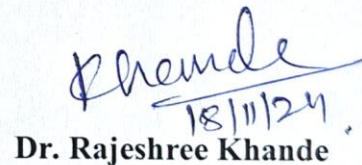 Khande
18/11/24
Dr. Rajeshree Khande